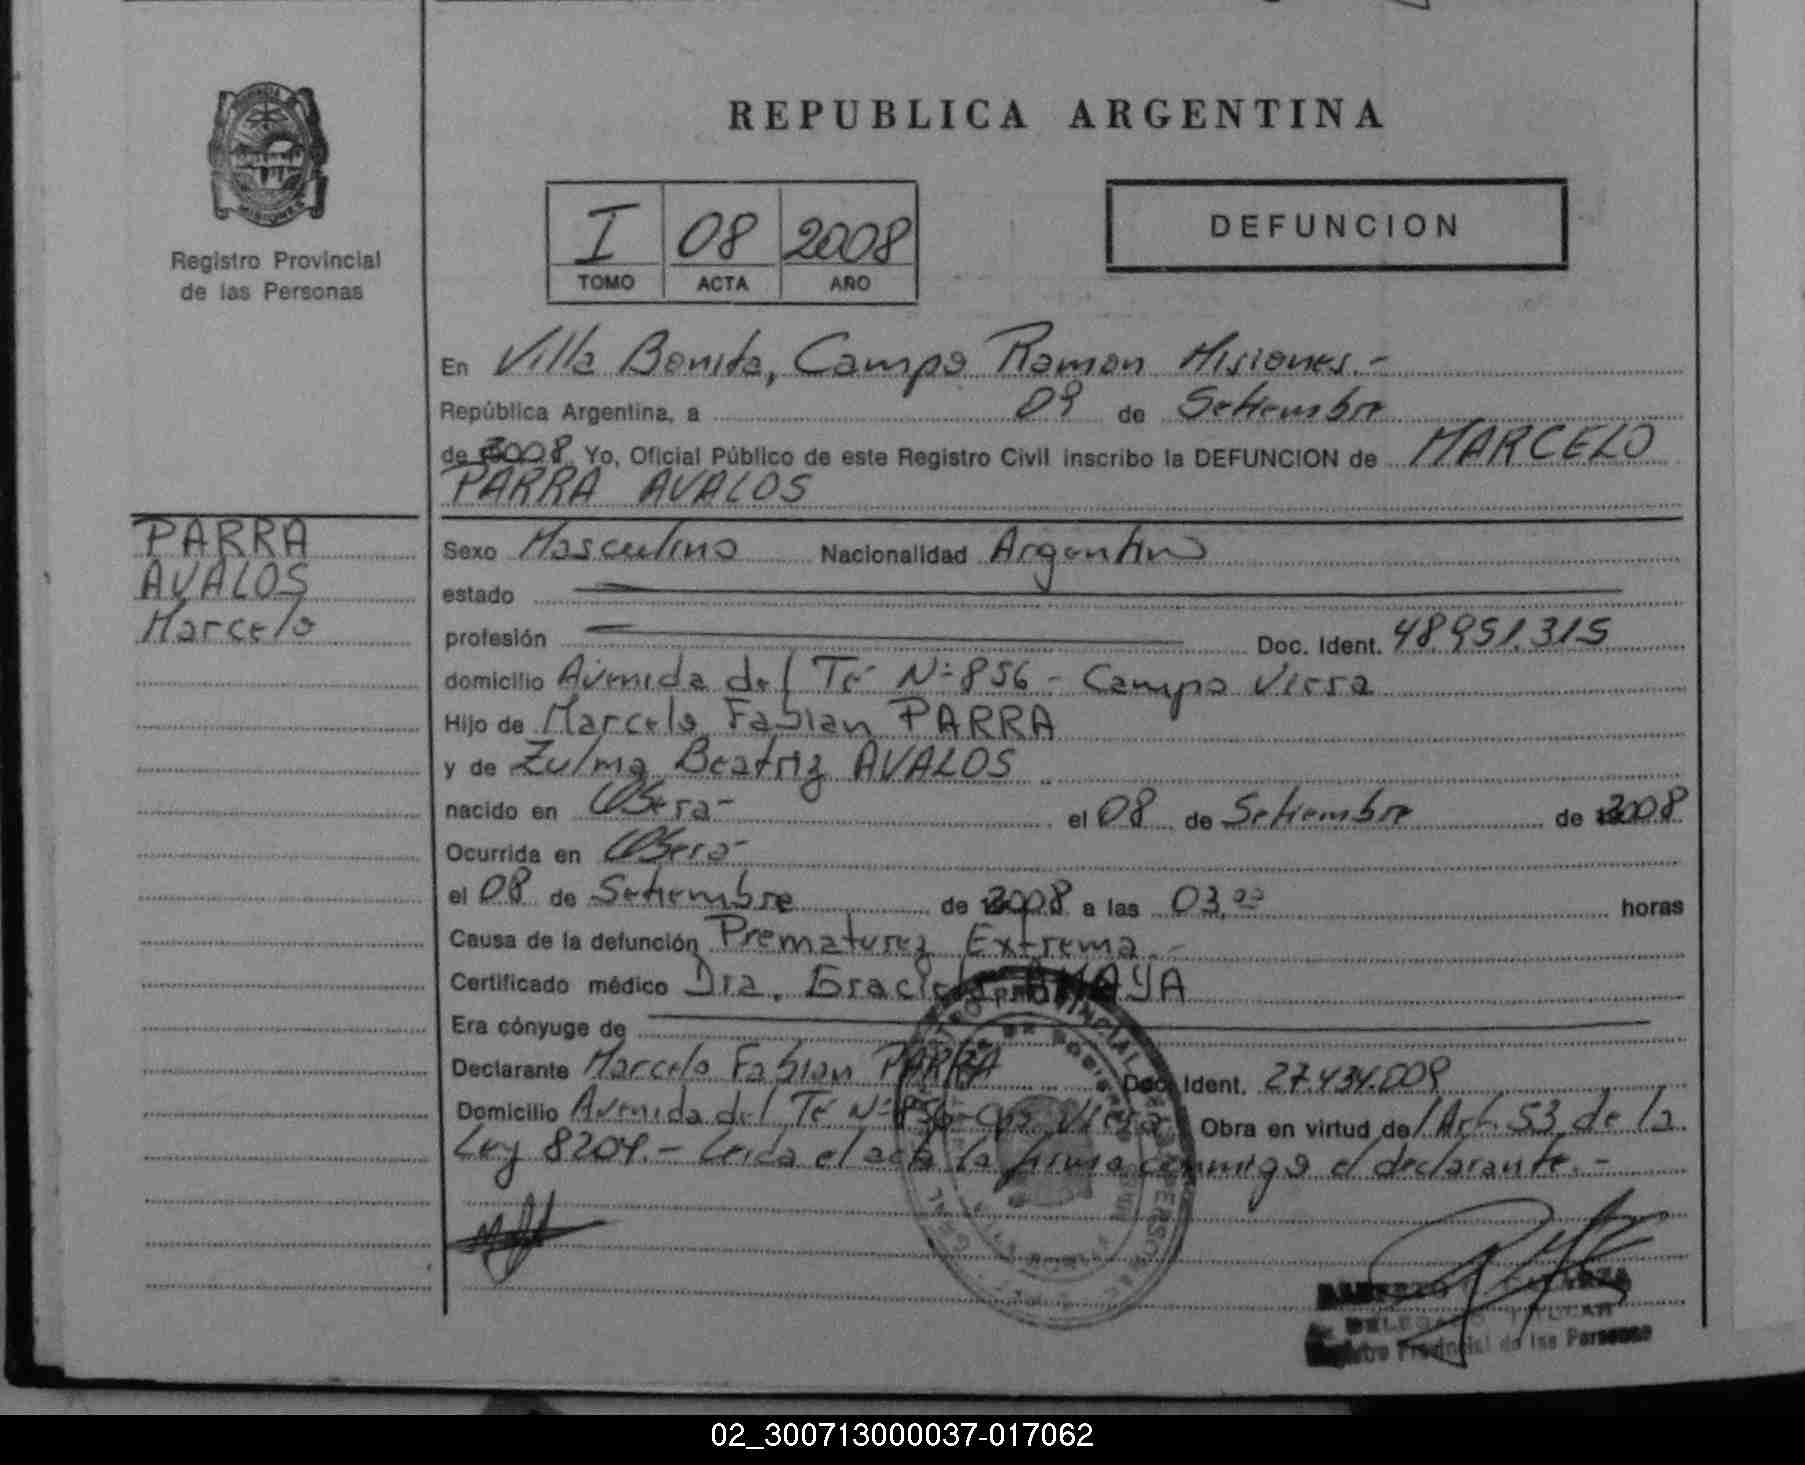 REPUBLICA ARGENTINA
PROVINCIA DE
MISIONES
Registro Provincial
de las Personas
I 08 2008
TOMO ACTA AÑO
DEFUNCION
En Villa Bonita, Campo Ramon Misiones.-
República Argentina, a 09 de Setiembre
de 2008 Yo, Oficial Público de este Registro Civil inscribo la DEFUNCION de MARCELO
PARRA AVALOS
PARRA
AVALOS
Marcelo
Sexo Masculino Nacionalidad Argentino
estado
profesión Doc. Ident. 48.951.315
domicilio Avenida del Té Nº 856 - Campo Viera
Hijo de Marcelo Fabian PARRA
y de Zulma Beatriz AVALOS
nacido en Oberá el 08 de Setiembre de 2008
Ocurrida en Oberá
el 08 de Setiembre de 2008 a las 03.00 horas
Causa de la defunción Prematurez Extrema.-
Certificado médico Dra. Graciela AMAYA
Era cónyuge de
Declarante Marcelo Fabian PARRA Doc. Ident. 27.434.009
Domicilio Avenida del Té Nº 856 - Cpo Viera Obra en virtud de l'Art. 53 de la
Ley 8204.- Leida el acta la firma conmigo el declarante.-
DELEGADO TITULAR
Registro Provincial de las Personas
02_300713000037-017062